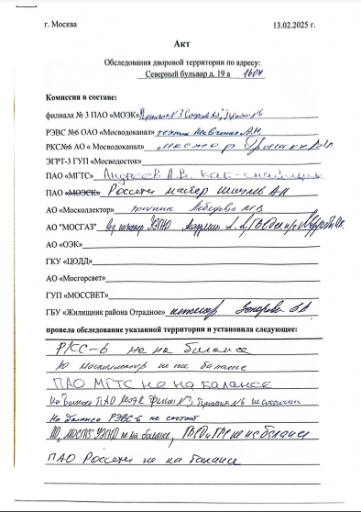 г. Москва 13.02.2025 г.
Акт
Обследования дворовой территории по адресу:
Северный бульвар д. 19 а
Комиссия в составе:
филиала № 3 ПАО «МОЭК»
РЭВС №6 ОАО «Мосводоканал» техник Шевченко А.Н.
РКС№6 АО « Мосводоканал» мастер
ЭГРТ-3 ГУП «Мосводосток»
ПАО «МГТС» Андреев А.В. каб-спайщик
ПАО «МОЭСК» Россети мастер
АО «Москоллектор» техник Лебедева
АО "МОСГАЗ"
АО «ОЭК»
ГКУ «ЦОДД»
АО «Мосгорсвет»
ГУП «МОССВЕТ»
ГБУ «Жилищник района Отрадное» инженер
провела обследование указанной территории и установила следующее:
РКС-6 не на балансе
АО москоллектор не на балансе
ПАО МГТС не на балансе
На балансе ПАО МОЭК Филиал №3 не состоит
На балансе РЭВС-6 не состоит
АО МОСГАЗ не на балансе, не на балансе
ПАО Россети не на балансе